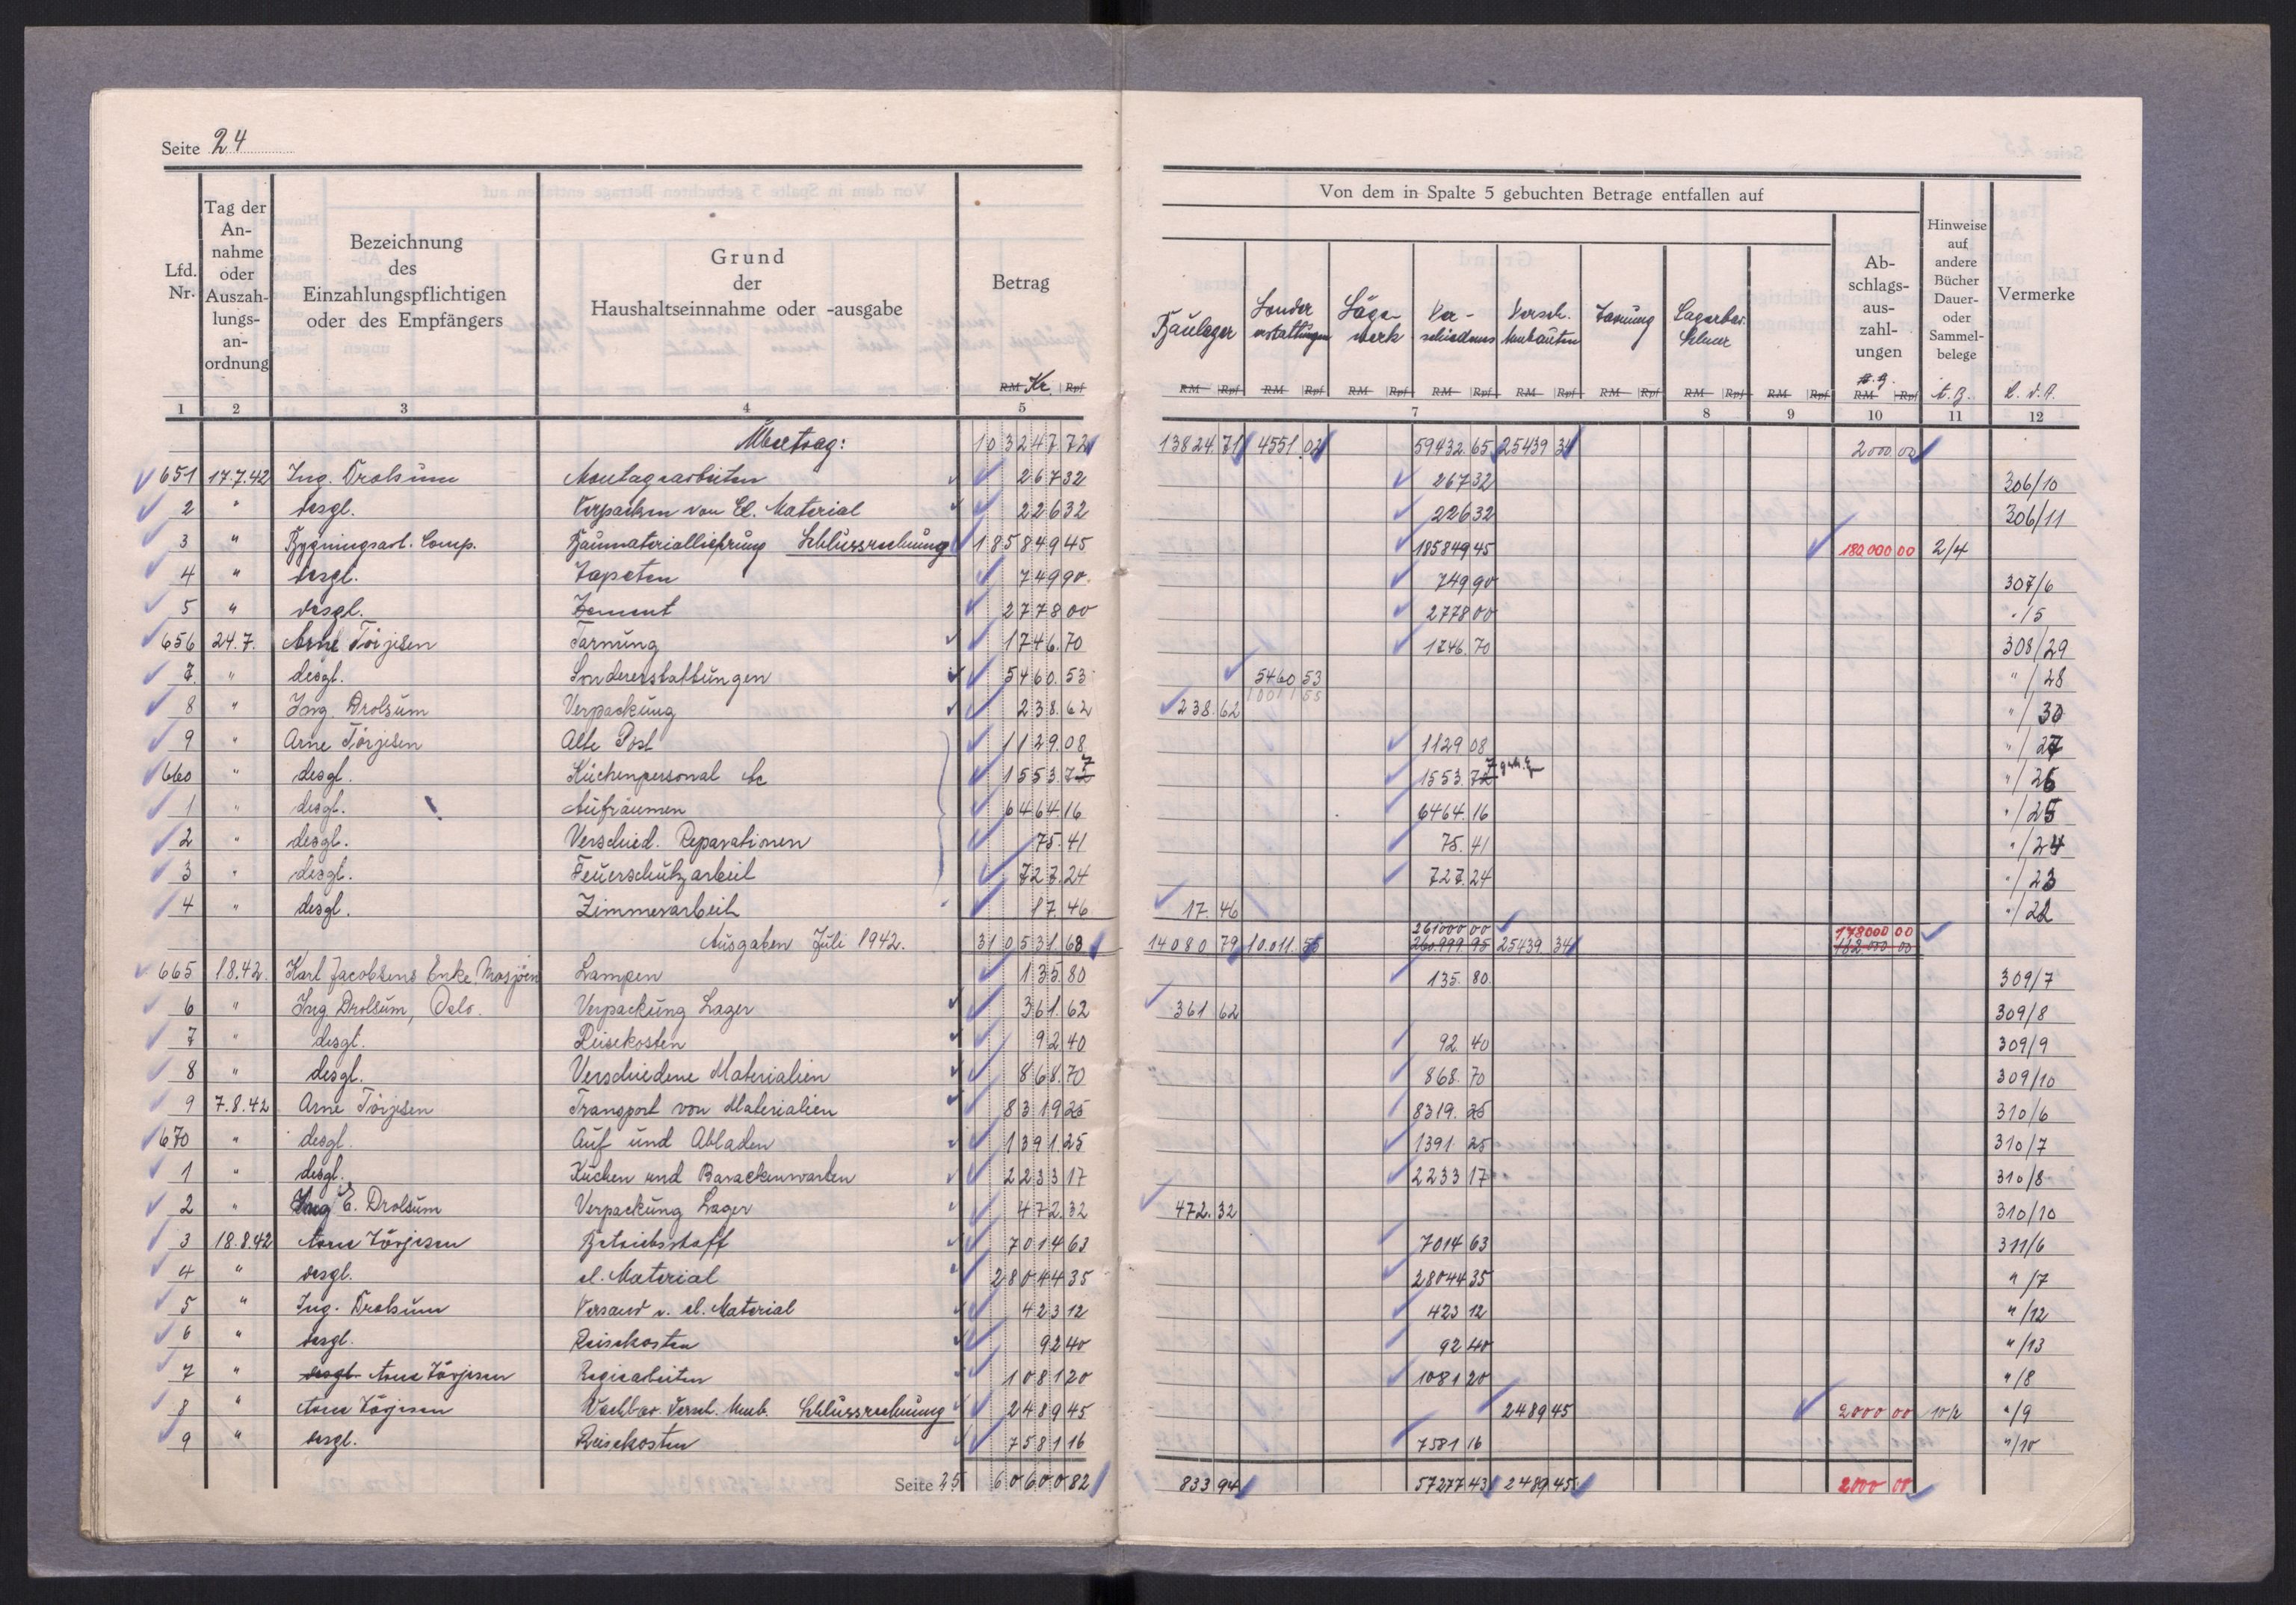 Seite 24
Lfd. Nr.
Tag der An- nahme oder Auszah- lungs- an- ordnung
Bezeichnung des Einzahlungspflichtigen oder des Empfängers
Grund der Haushaltseinnahme oder -ausgabe
Betrag
RM Kr. Rpf
Von dem in Spalte 5 gebuchten Betrage entfallen auf
Baulager
Sonder erstattungen
Säge- werk
Ver- schiedenes
Versch. Neubauten
Tarnung
Ab- schlags- aus- zahl- ungen
RM Rpf
Hinweise auf andere Bücher Dauer- oder Sammel- belege
Vermerke
RM Rpf RM Rpf RM Rpf RM Rpf RM Rpf RM Rpf RM Rpf RM Rpf
1 2 3 4 5 7 8 9 10 11 12
Übertrag: 103247.72 13824.71 4551.02 59432.65 25439 34 2000 00
651 17.7.42 Ing. Drolsum Montagearbeiten 267 32 267 32 306/10
2 " desgl. Verpacken von El. Material 226 32 226 32 306/11
3 " Bygningsart. Comp. Baumateriallieferung Schlussrechnung 185849 45 185849 45 182000 00 2/4
4 " desgl. Tapeten 749 90 749 90 307/6
5 " desgl. Zement 2778 00 2778 00 " /5
656 24.7. Arne Törjesen Tarnung 1746.70 1746.70 308/29
7 " desgl. Sondererstattungen 5460.53 5460 53 " /28
10011 55
8 " Ing. Drolsum Verpackung 238.62 238.62 " /30
9 " Arne Törjesen Alte Post 1129.08 1129 08 " /27
660 " desgl. Küchenpersonal etc 1553.77 1553.77 " /26
1 " desgl. Aufräumen 6464.16 6464.16 " /25
2 " desgl. Verschied. Reparationen 75.41 75.41 " /24
3 " desgl. Feuerschutzarbeit 727.24 727.24 " /23
4 " desgl. Zimmerarbeit 17.46 17.46 " /22
261000 00 178000 00
Ausgaben Juli 1942. 310531.68 14080 79 10.011.55 260.999.95 25439.34 182.000 00
665 1.8.42. Karl Jacobsens Enke. Mosjöen Lampen 135.80 135.80. 309/7
6 " Ing Drolsum, Oslo. Verpackung Lager 361.62 361 62 309/8
7 " desgl. Reisekosten 92 40 92.40 309/9
8 " desgl. Verschiedene Materialien 868.70 868.70 309/10
9 7.8.42 Arne Törjesen Transport von Materialien 8319 25 8319.25 310/6
670 " desgl. Auf und Abladen 1391.25 1391.25 310/7
1 " desgl. Küchen und Barackenwarten 2233 17 2233 17 310/8
2 " Ing E. Drolsum Verpackung Lager 472.32 472.32 310/10
3 18.8.42 Arne Törjesen Betriebsstoff 7014 63 7014 63 311/6
4 " desgl. el. Material 28044 35 28044 35 " /7
5 " Ing. Drolsum Versand v. el. Material 423 12 423 12 " /12
6 " desgl. Reisekosten 92 40 92 40 " /13
7 " desgl. Arne Törjesen Regiearbeiten 1081 20 1081 20 " /8
8 " Arne Törjesen Wachbar. Versch. Neub. Schlussrechnung 2489 45 2489 45 2000 00 10/2 " /9
9 " desgl. Reisekosten 7581 16 7581 16 " /10
Seite 25 60600 82 833 94 57277 43 2489 45 2000 00